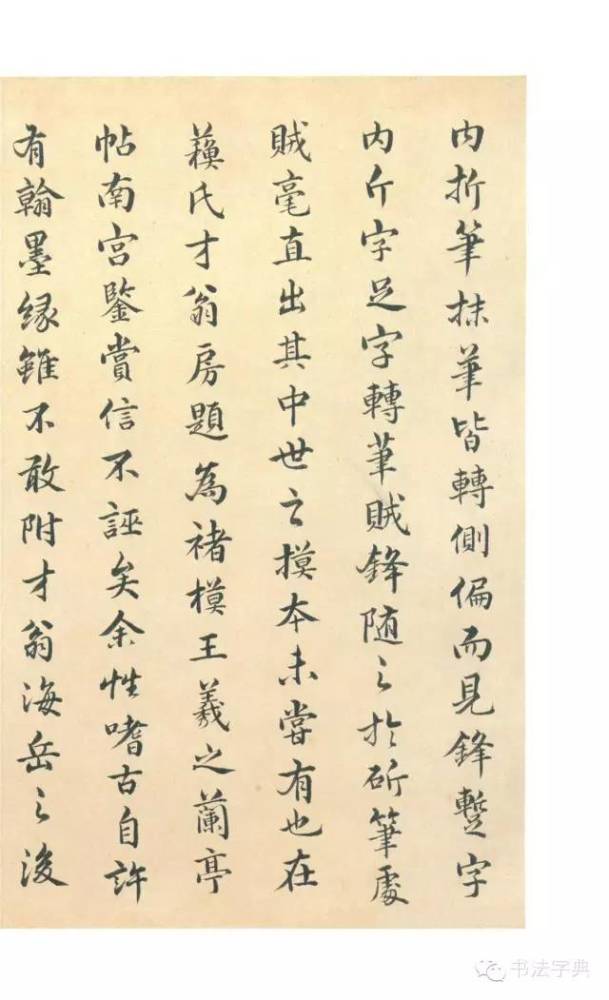 内折筆抹筆皆轉側偏而見鋒蹔字
内斤字足字轉筆賊鋒随之於斫筆處
賊毫直出其中世之摸本未嘗有也在
蘓氏才翁房題為褚模王羲之蘭亭
帖南宫鑒賞信不誣矣余性嗜古自許
有翰墨縁雖不敢附才翁海岳之後
书法字典